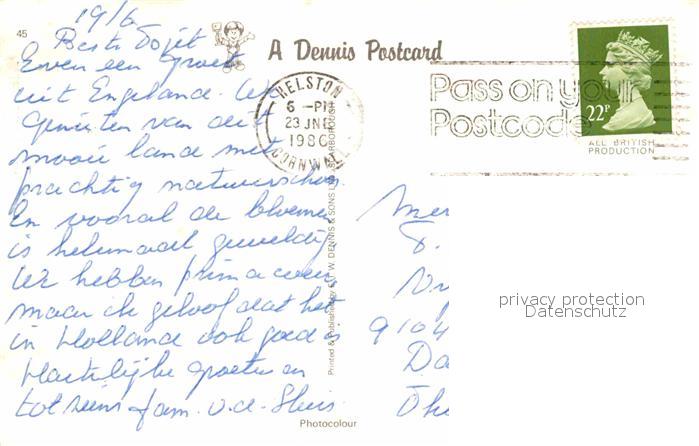 19/6
45
Beste Dojet
Even een groet
uit Engeland. We
genieten van dit
mooie land met
prachtig natuurschoon
En vooral de bloemen
is helemaal geweldig
We hebben prima weer
maar ik geloof dat het
in Holland ook goed is
Hartelijke groeten en
tot ziens fam. v.d. Sluis
A Dennis Postcard
HELSTON
6 -PM
23 JNE
1986
CORNWALL
Pass on your
Postcode
22P
ALL BRITISH
PRODUCTION
Printed & Published by E.T.W. DENNIS & SONS LTD., SCARBOROUGH
Photocolour
Mev
9104
Da
privacy protection
Datenschutz